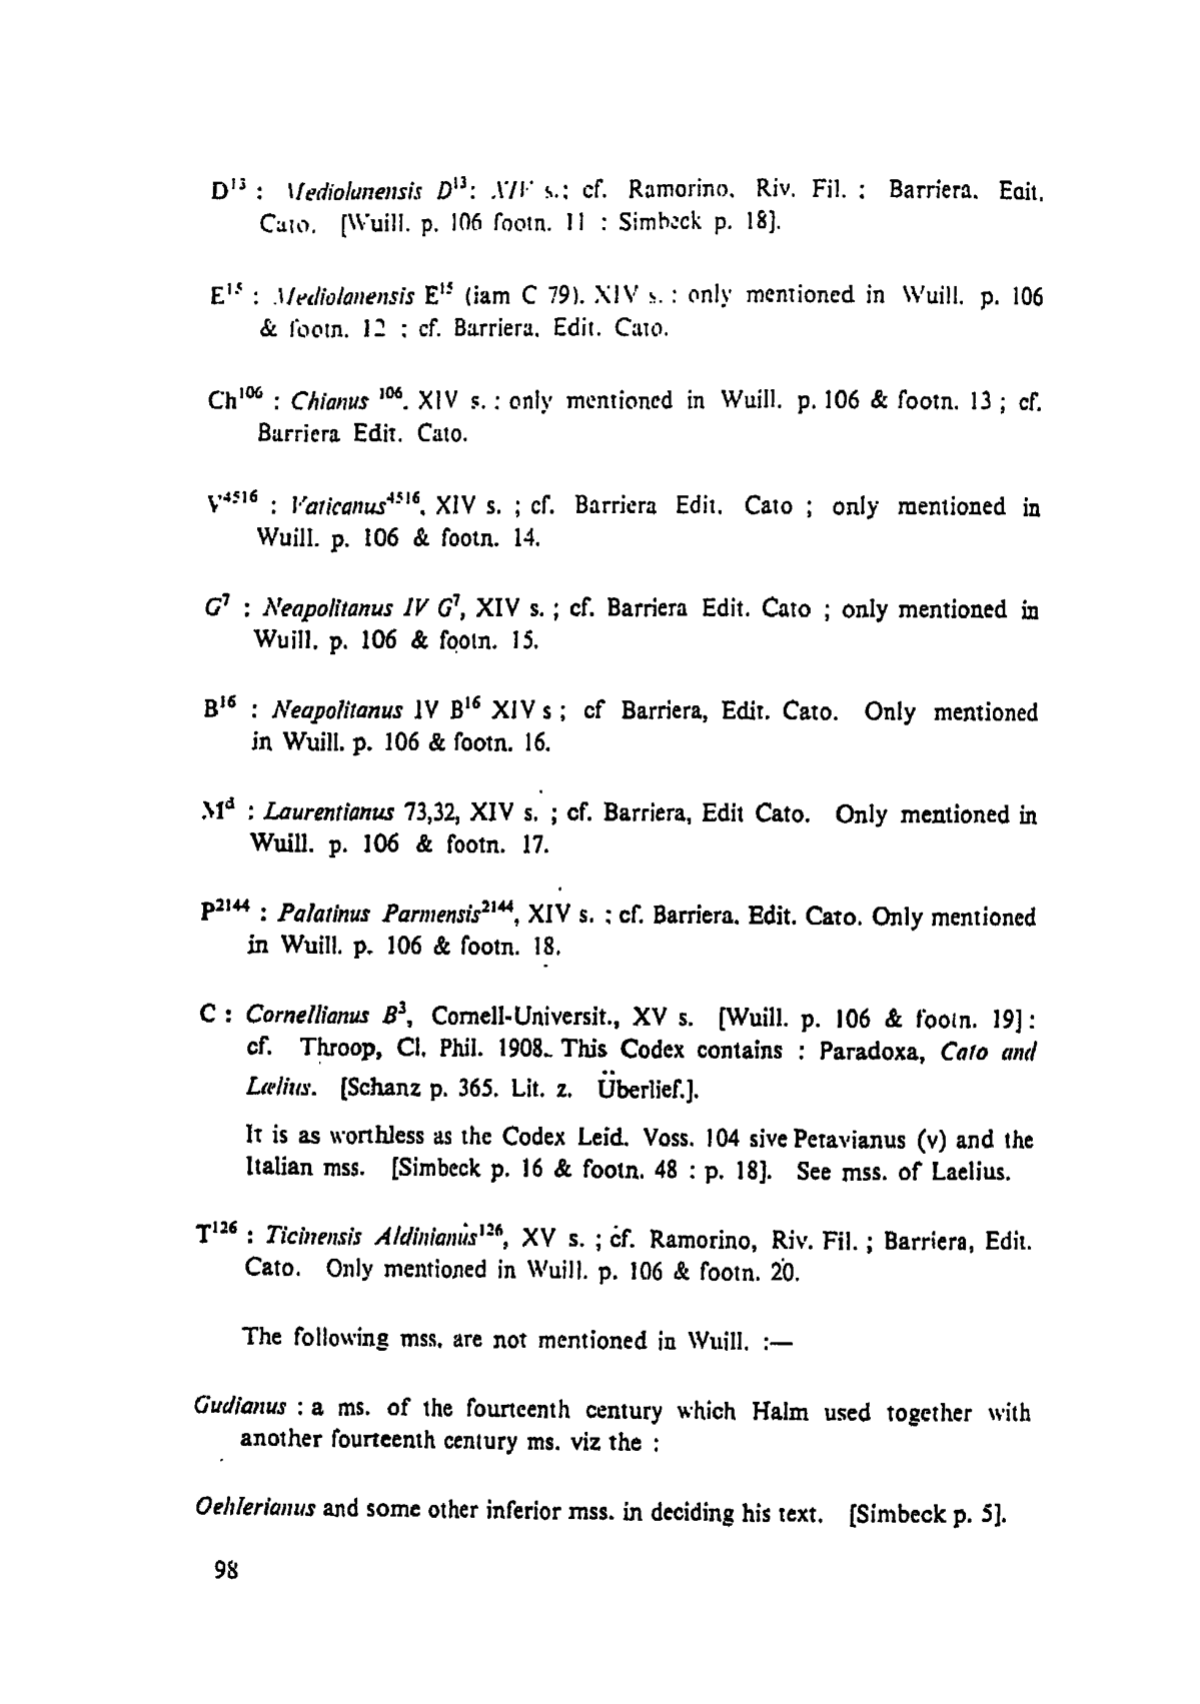 D¹³ : Mediolunensis D¹³: XIV s.; cf. Ramorino. Riv. Fil. ; Barriera. Edit.
Cato. [Wuill. p. 106 footn. 11 : Simbeck p. 18].
E¹⁵ : Mediolanensis E¹⁵ (iam C 79). XIV s. : only mentioned in Wuill. p. 106
& footn. 12 ; cf. Barriera. Edit. Cato.
Ch¹⁰⁶ : Chianus ¹⁰⁶. XIV s. : only mentioned in Wuill. p. 106 & footn. 13 ; cf.
Barriera Edit. Cato.
V⁴⁵¹⁶ : Vaticanus⁴⁵¹⁶, XIV s. ; cf. Barriera Edit. Cato ; only mentioned in
Wuill. p. 106 & footn. 14.
G⁷ : Neapolitanus IV G⁷, XIV s. ; cf. Barriera Edit. Cato ; only mentioned in
Wuill. p. 106 & footn. 15.
B¹⁶ : Neapolitanus IV B¹⁶ XIV s ; cf Barriera, Edit. Cato. Only mentioned
in Wuill. p. 106 & footn. 16.
Mᵈ : Laurentianus 73,32, XIV s. ; cf. Barriera, Edit Cato. Only mentioned in
Wuill. p. 106 & footn. 17.
P²¹⁴⁴ : Palatinus Parmensis²¹⁴⁴, XIV s. ; cf. Barriera. Edit. Cato. Only mentioned
in Wuill. p. 106 & footn. 18.
C : Cornellianus B³, Cornell-Universit., XV s. [Wuill. p. 106 & footn. 19] :
cf. Throop, Cl. Phil. 1908. This Codex contains : Paradoxa, Cato and
Lælius. [Schanz p. 365. Lit. z. Überlief.].
It is as worthless as the Codex Leid. Voss. 104 sive Petavianus (v) and the
Italian mss. [Simbeck p. 16 & footn. 48 : p. 18]. See mss. of Laelius.
T¹²⁶ : Ticinensis Aldinianus¹²⁶, XV s. ; cf. Ramorino, Riv. Fil. ; Barriera, Edit.
Cato. Only mentioned in Wuill. p. 106 & footn. 20.
The following mss. are not mentioned in Wuill. :—
Gudianus : a ms. of the fourteenth century which Halm used together with
another fourteenth century ms. viz the :
Oehlerianus and some other inferior mss. in deciding his text. [Simbeck p. 5].
98